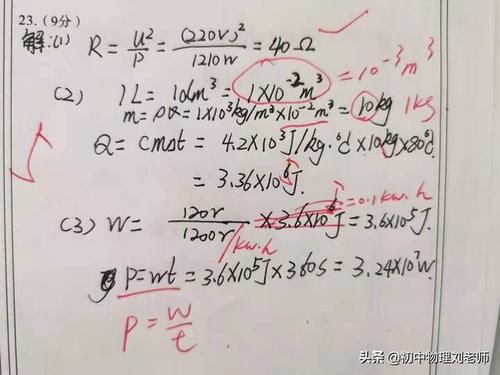 23.(9分)
解:(1) R = U²/P = (220V)²/1210W = 40Ω
(2) 1L = 1dm³ = 1×10⁻²m³ = 10⁻³m³
m = ρV = 1×10³kg/m³×10⁻²m³ = 10kg 1kg
Q = cmΔt = 4.2×10³J/kg·℃×10kg×80℃
= 3.36×10⁶J.
(3) W = 120r/1200r/kw.h ×3.6×10⁶J = 3.6×10⁵J. =0.1kw.h
P=wt = 3.6×10⁵J×360s = 3.24×10²W.
P = W/t
头条 @初中物理刘老师